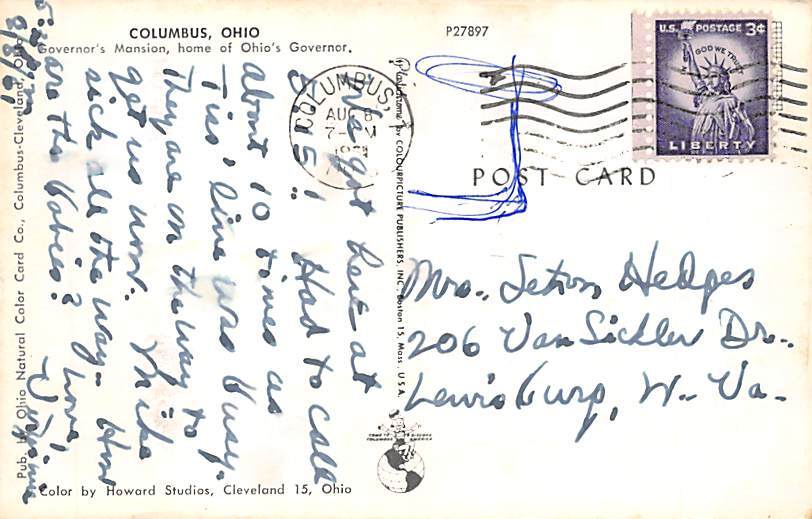 COLUMBUS, OHIO
Governor's Mansion, home of Ohio's Governor.
P27897
5:30 p.m.
8/8/61
We got here at
5:15. Had to call
about 10 times as
Tiss' line was busy.
They are on the way to
get us now. Mike
sick all the way. How
are the babies?
Love,
Pub. by Ohio Natural Color Card Co., Columbus-Cleveland, Ohio
Color by Howard Studios, Cleveland 15, Ohio
Plastichrome by COLOURPICTURE PUBLISHERS, INC., Boston 15, Mass., U.S.A.
COLUMBUS,
AUG 8
7- PM
1961
U.S. POSTAGE 3¢
IN GOD WE TRUST
LIBERTY
POST CARD
Mrs. Hedges
206 Van Sickler Dr..
Lewisburg, W. Va.
COME TO COLUMBUS
DISCOVER AMERICA